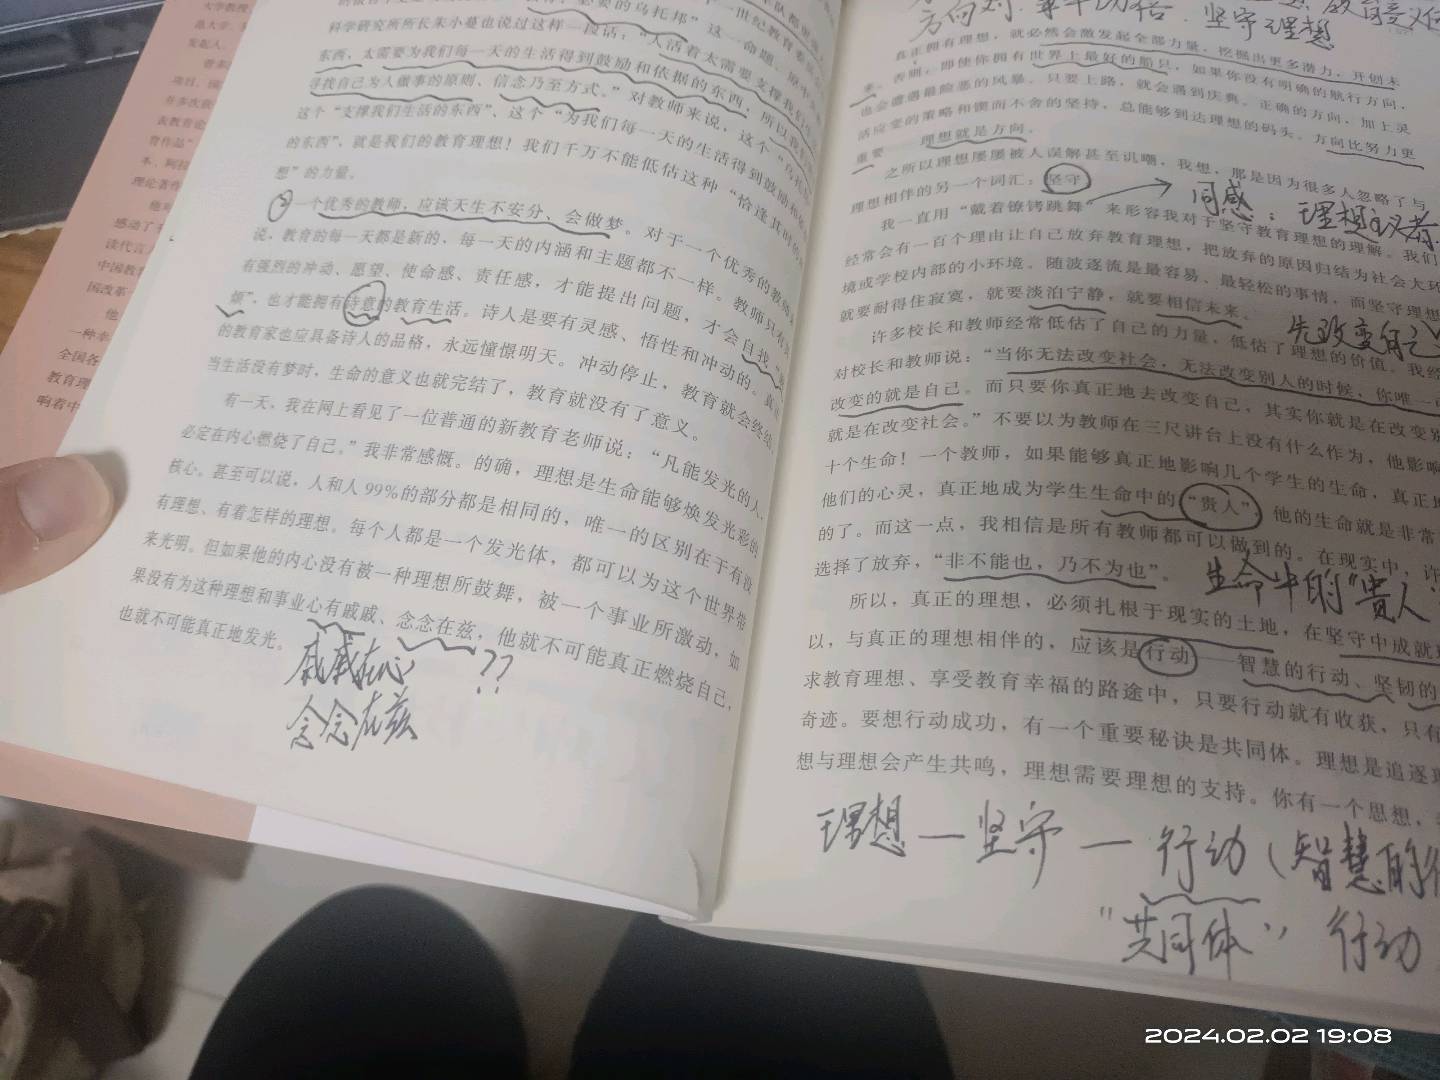 大学教授、
科学研究所所长朱小蔓也说过这样一段话：“人活着太需要支撑我们生
东西，太需要为我们每一天的生活得到鼓励和依据的东西，所以我们
寻找自己为人做事的原则、信念乃至方式。”对教师来说，这个“乌托邦
这个“支撑我们生活的东西”、这个“为我们每一天的生活得到鼓励和依
的东西”，就是我们的教育理想！我们千万不能低估这种“恰逢其时的
想”的力量。
一个优秀的教师，应该天生不安分、会做梦。对于一个优秀的教师
说，教育的每一天都是新的，每一天的内涵和主题都不一样。教师只有
有强烈的冲动、愿望、使命感、责任感，才能提出问题，才会自找“麻
烦”，也才能拥有诗意的教育生活。诗人是要有灵感、悟性和冲动的。真正
的教育家也应具备诗人的品格，永远憧憬明天。冲动停止，教育就会终结。
当生活没有梦时，生命的意义也就完结了，教育就没有了意义。
有一天，我在网上看见了一位普通的新教育老师说：“凡能发光的人，
必定在内心燃烧了自己。”我非常感慨。的确，理想是生命能够焕发光彩的
核心。甚至可以说，人和人99%的部分都是相同的，唯一的区别在于有没
有理想、有着怎样的理想。每个人都是一个发光体，都可以为这个世界带
来光明。但如果他的内心没有被一种理想所鼓舞，被一个事业所激动，如
果没有为这种理想和事业心有戚戚、念念在兹，他就不可能真正燃烧自己，
也就不可能真正地发光。
戚戚在心 ??
念念在兹
坚守理想
真正拥有理想，就必然会激发起全部力量，挖掘出更多潜力，开创未
来。否则，即使你拥有世界上最好的船只，如果你没有明确的航行方向，
也会遭遇最险恶的风暴。只要上路，就会遇到庆典。正确的方向，加上灵
活应变的策略和锲而不舍的坚持，总能够到达理想的码头。方向比努力更
重要——理想就是方向。
之所以理想屡屡被人误解甚至讥嘲，我想，那是因为很多人忽略了与
理想相伴的另一个词汇：坚守
同感：理想主义者
我一直用“戴着镣铐跳舞”来形容我对于坚守教育理想的理解。我们
经常会有一百个理由让自己放弃教育理想，把放弃的原因归结为社会大环
境或学校内部的小环境。随波逐流是最容易、最轻松的事情，而坚守理想
就要耐得住寂寞，就要淡泊宁静，就要相信未来。
先改变自己
许多校长和教师经常低估了自己的力量，低估了理想的价值。我经
对校长和教师说：“当你无法改变社会，无法改变别人的时候，你唯一可
改变的就是自己。而只要你真正地去改变自己，其实你就是在改变别
就是在改变社会。”不要以为教师在三尺讲台上没有什么作为，他影响
十个生命！一个教师，如果能够真正地影响几个学生的生命，真正地
他们的心灵，真正地成为学生生命中的“贵人”，他的生命就是非常
的了。而这一点，我相信是所有教师都可以做到的。在现实中，许
选择了放弃，“非不能也，乃不为也”。
生命中的“贵人
所以，真正的理想，必须扎根于现实的土地，在坚守中成就理
以，与真正的理想相伴的，应该是行动——智慧的行动、坚韧的
求教育理想、享受教育幸福的路途中，只要行动就有收获，只有
奇迹。要想行动成功，有一个重要秘诀是共同体。理想是追逐理
想与理想会产生共鸣，理想需要理想的支持。你有一个思想，
理想—坚守—行动（智慧的行
“共同体” 行动
2024.02.02 19:08